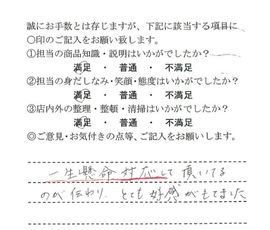 誠にお手数とは存じますが、下記に該当する項目に
〇印のご記入をお願い致します。
①担当の商品知識・説明はいかがでしたか？
満足 ・ 普通 ・ 不満足
②担当の身だしなみ・笑顔・態度はいかがでしたか？
満足 ・ 普通 ・ 不満足
③店内外の整理・整頓・清掃はいかがでしたか？
満足 ・ 普通 ・ 不満足
◎ご意見・お気付きの点等、ご記入をお願いします。
一生懸命対応して頂いてる
のが伝わり とても好感がもてました